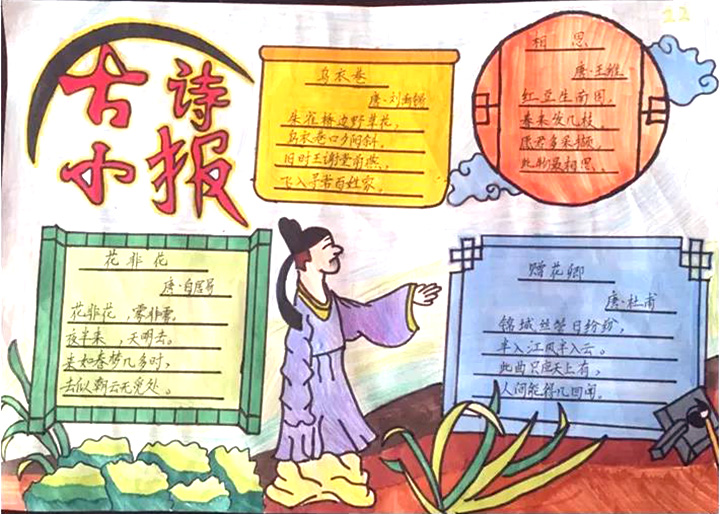 古诗
小报
12
乌衣巷
唐·刘禹锡
朱雀桥边野草花，
乌衣巷口夕阳斜。
旧时王谢堂前燕，
飞入寻常百姓家。
相思
唐·王维
红豆生南国，
春来发几枝。
愿君多采撷，
此物最相思。
花非花
唐·白居易
花非花，雾非雾。
夜半来，天明去。
来如春梦几多时，
去似朝云无觅处。
赠花卿
唐·杜甫
锦城丝管日纷纷，
半入江风半入云。
此曲只应天上有，
人间能得几回闻。